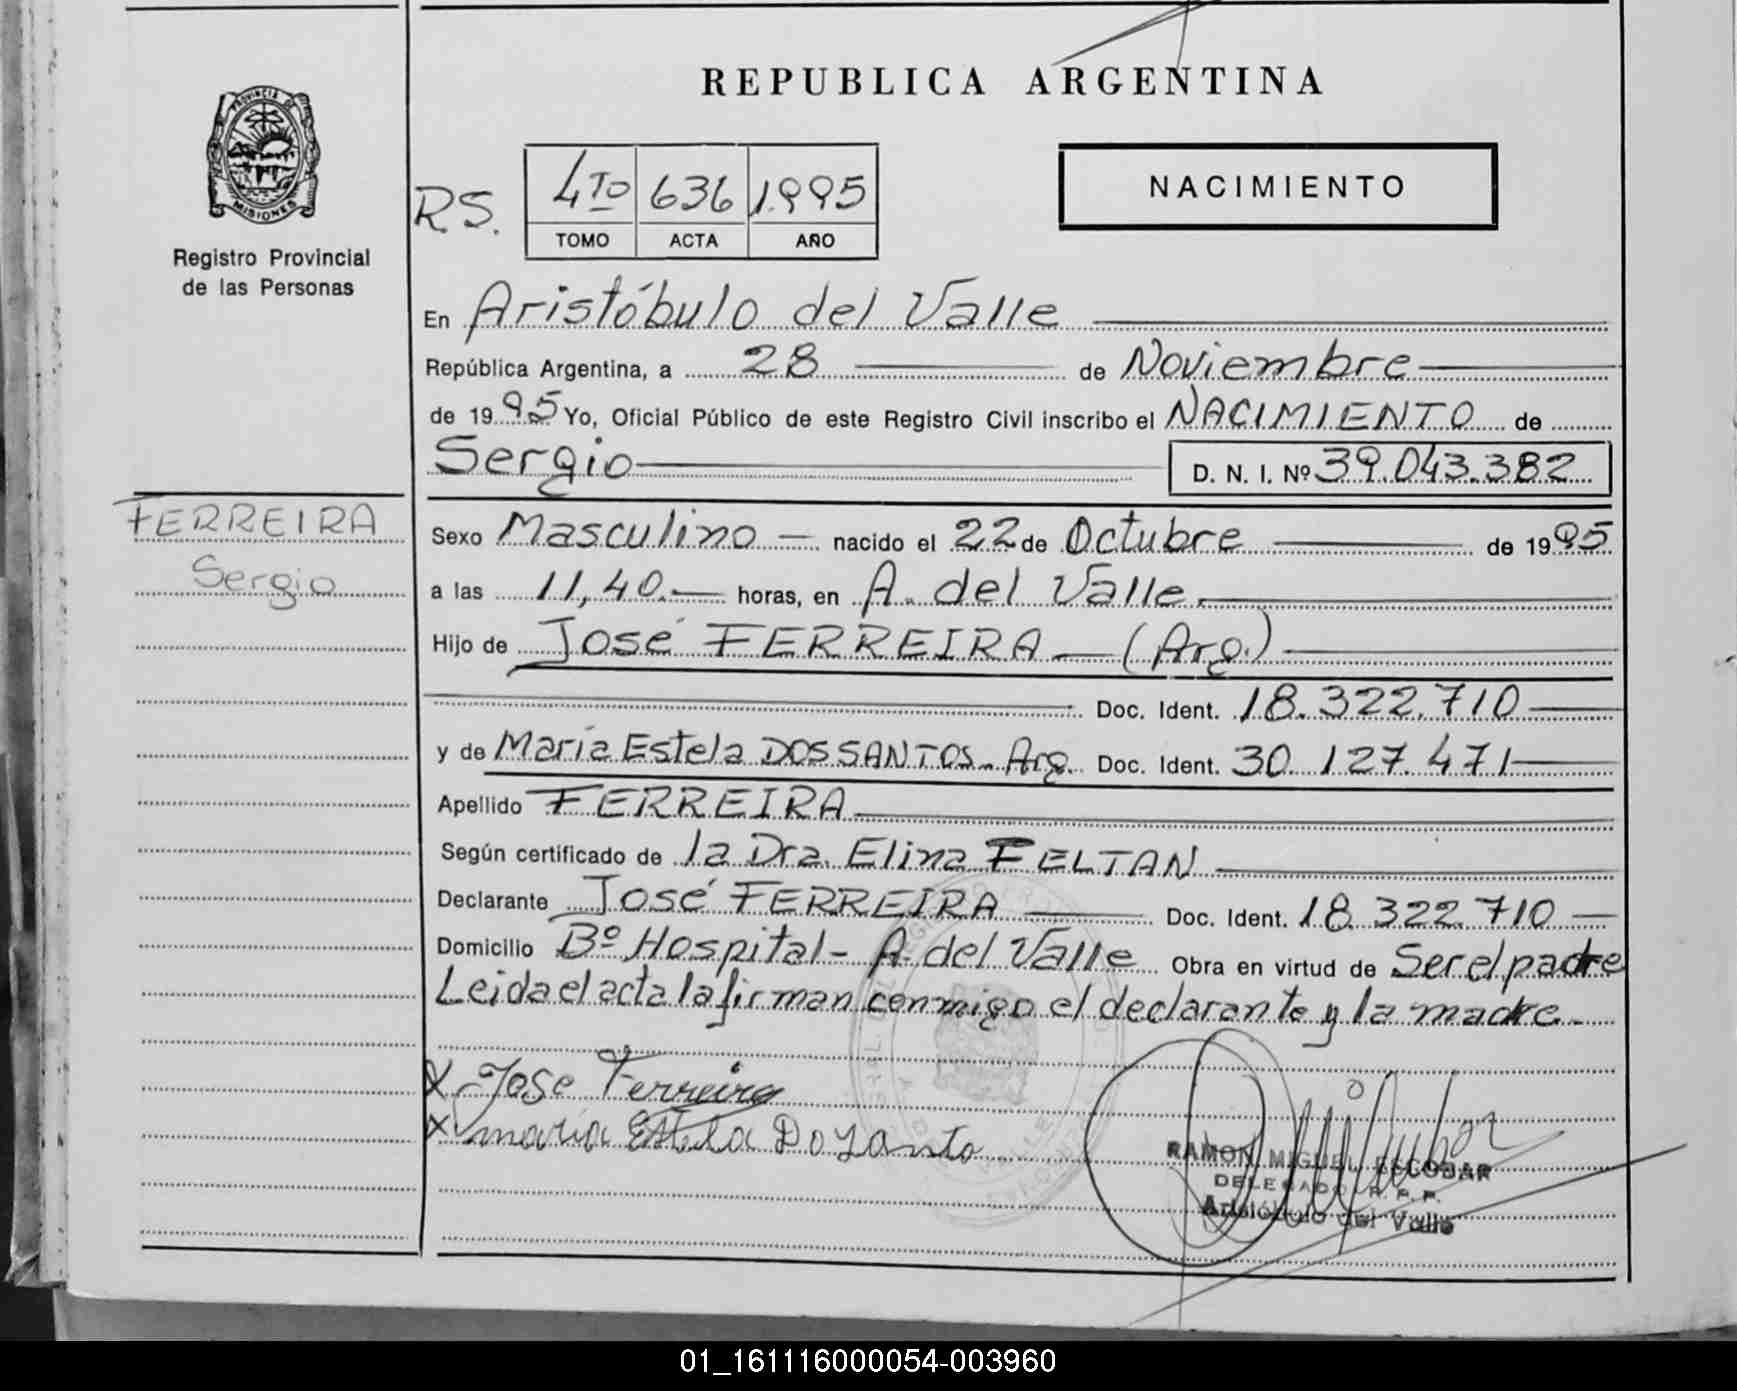 REPUBLICA ARGENTINA
PROVINCIA DE
MISIONES
Registro Provincial
de las Personas
RS.
4TO 636 1.995
TOMO ACTA AÑO
NACIMIENTO
En Aristóbulo del Valle
República Argentina, a 28 de Noviembre
de 1995 Yo, Oficial Público de este Registro Civil inscribo el NACIMIENTO de
Sergio D. N. I. Nº 39.043.382
FERREIRA
Sergio
Sexo Masculino nacido el 22 de Octubre de 1995
a las 11,40.- horas, en A. del Valle.
Hijo de José FERREIRA - (Arg.)
Doc. Ident. 18.322.710
y de María Estela DOS SANTOS - Arg. Doc. Ident. 30.127.471
Apellido FERREIRA
Según certificado de la Dra. Elina FELTAN
Declarante José FERREIRA Doc. Ident. 18.322.710
Domicilio Bº Hospital - A. del Valle Obra en virtud de Ser el padre
Leida el acta la firman conmigo el declarante y la madre.
X Jose Ferreira
X maria Estela Do Santo
RAMON MIGUEL ESCOBAR
DELEGADO R. P. P.
Aristóbulo del Valle
01_161116000054-003960